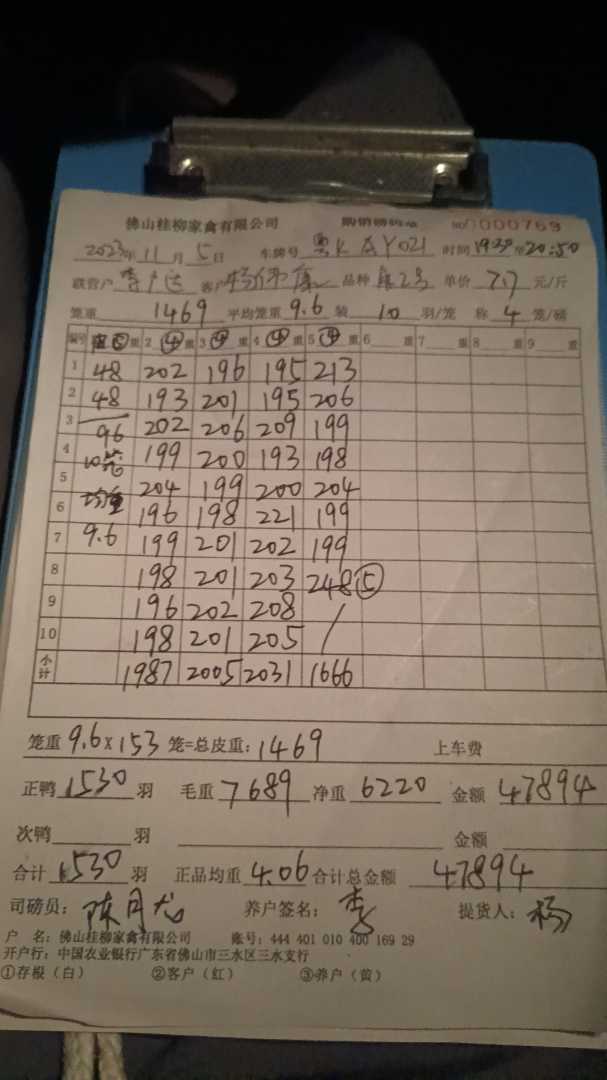 佛山桂柳家禽有限公司 购销磅码单 NO 0000769
2023年11月5日 车牌号 粤K 时间1930至20:50
联营户 客户 品种 单价 7.7 元/斤
笼重 1469 平均笼重9.6 装 10 羽/笼 称 4 笼/磅
编号 ⑤重 2 ④重 3 ④重 4 ④重 5 ④重 6 重 7 重 8 重 9 重
1 48 202 196 195 213
2 48 193 201 195 206
3 96 202 206 209 199
4 10笼 199 200 193 198
5 均重 204 199 200 204
6 196 198 221 199
7 9.6 199 201 202 199
8 198 201 203 248⑤
9 196 202 208 /
10 198 201 205 /
小计 1987 2005 2031 1666
笼重 9.6×153 笼=总皮重:1469 上车费
正鸭 1530 羽 毛重 7689 净重 6220 金额 47894
次鸭 羽 金额
合计 1530 羽 正品均重 4.06 合计总金额 47894
司磅员: 陈月尤 养户签名: 李 提货人: 杨
户 名:佛山桂柳家禽有限公司 账号:444 401 010 400 169 29
开户行:中国农业银行广东省佛山市三水区三水支行
①存根(白) ②客户(红) ③养户(黄)